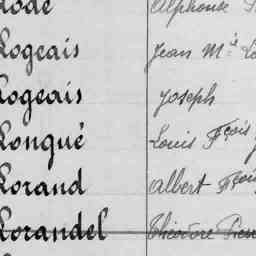 Lodé Alphonse
Logeais Jean M.ie
Logeais Joseph
Longué Louis Fçois
Lorand Albert Fçois
Lorandel Théodore